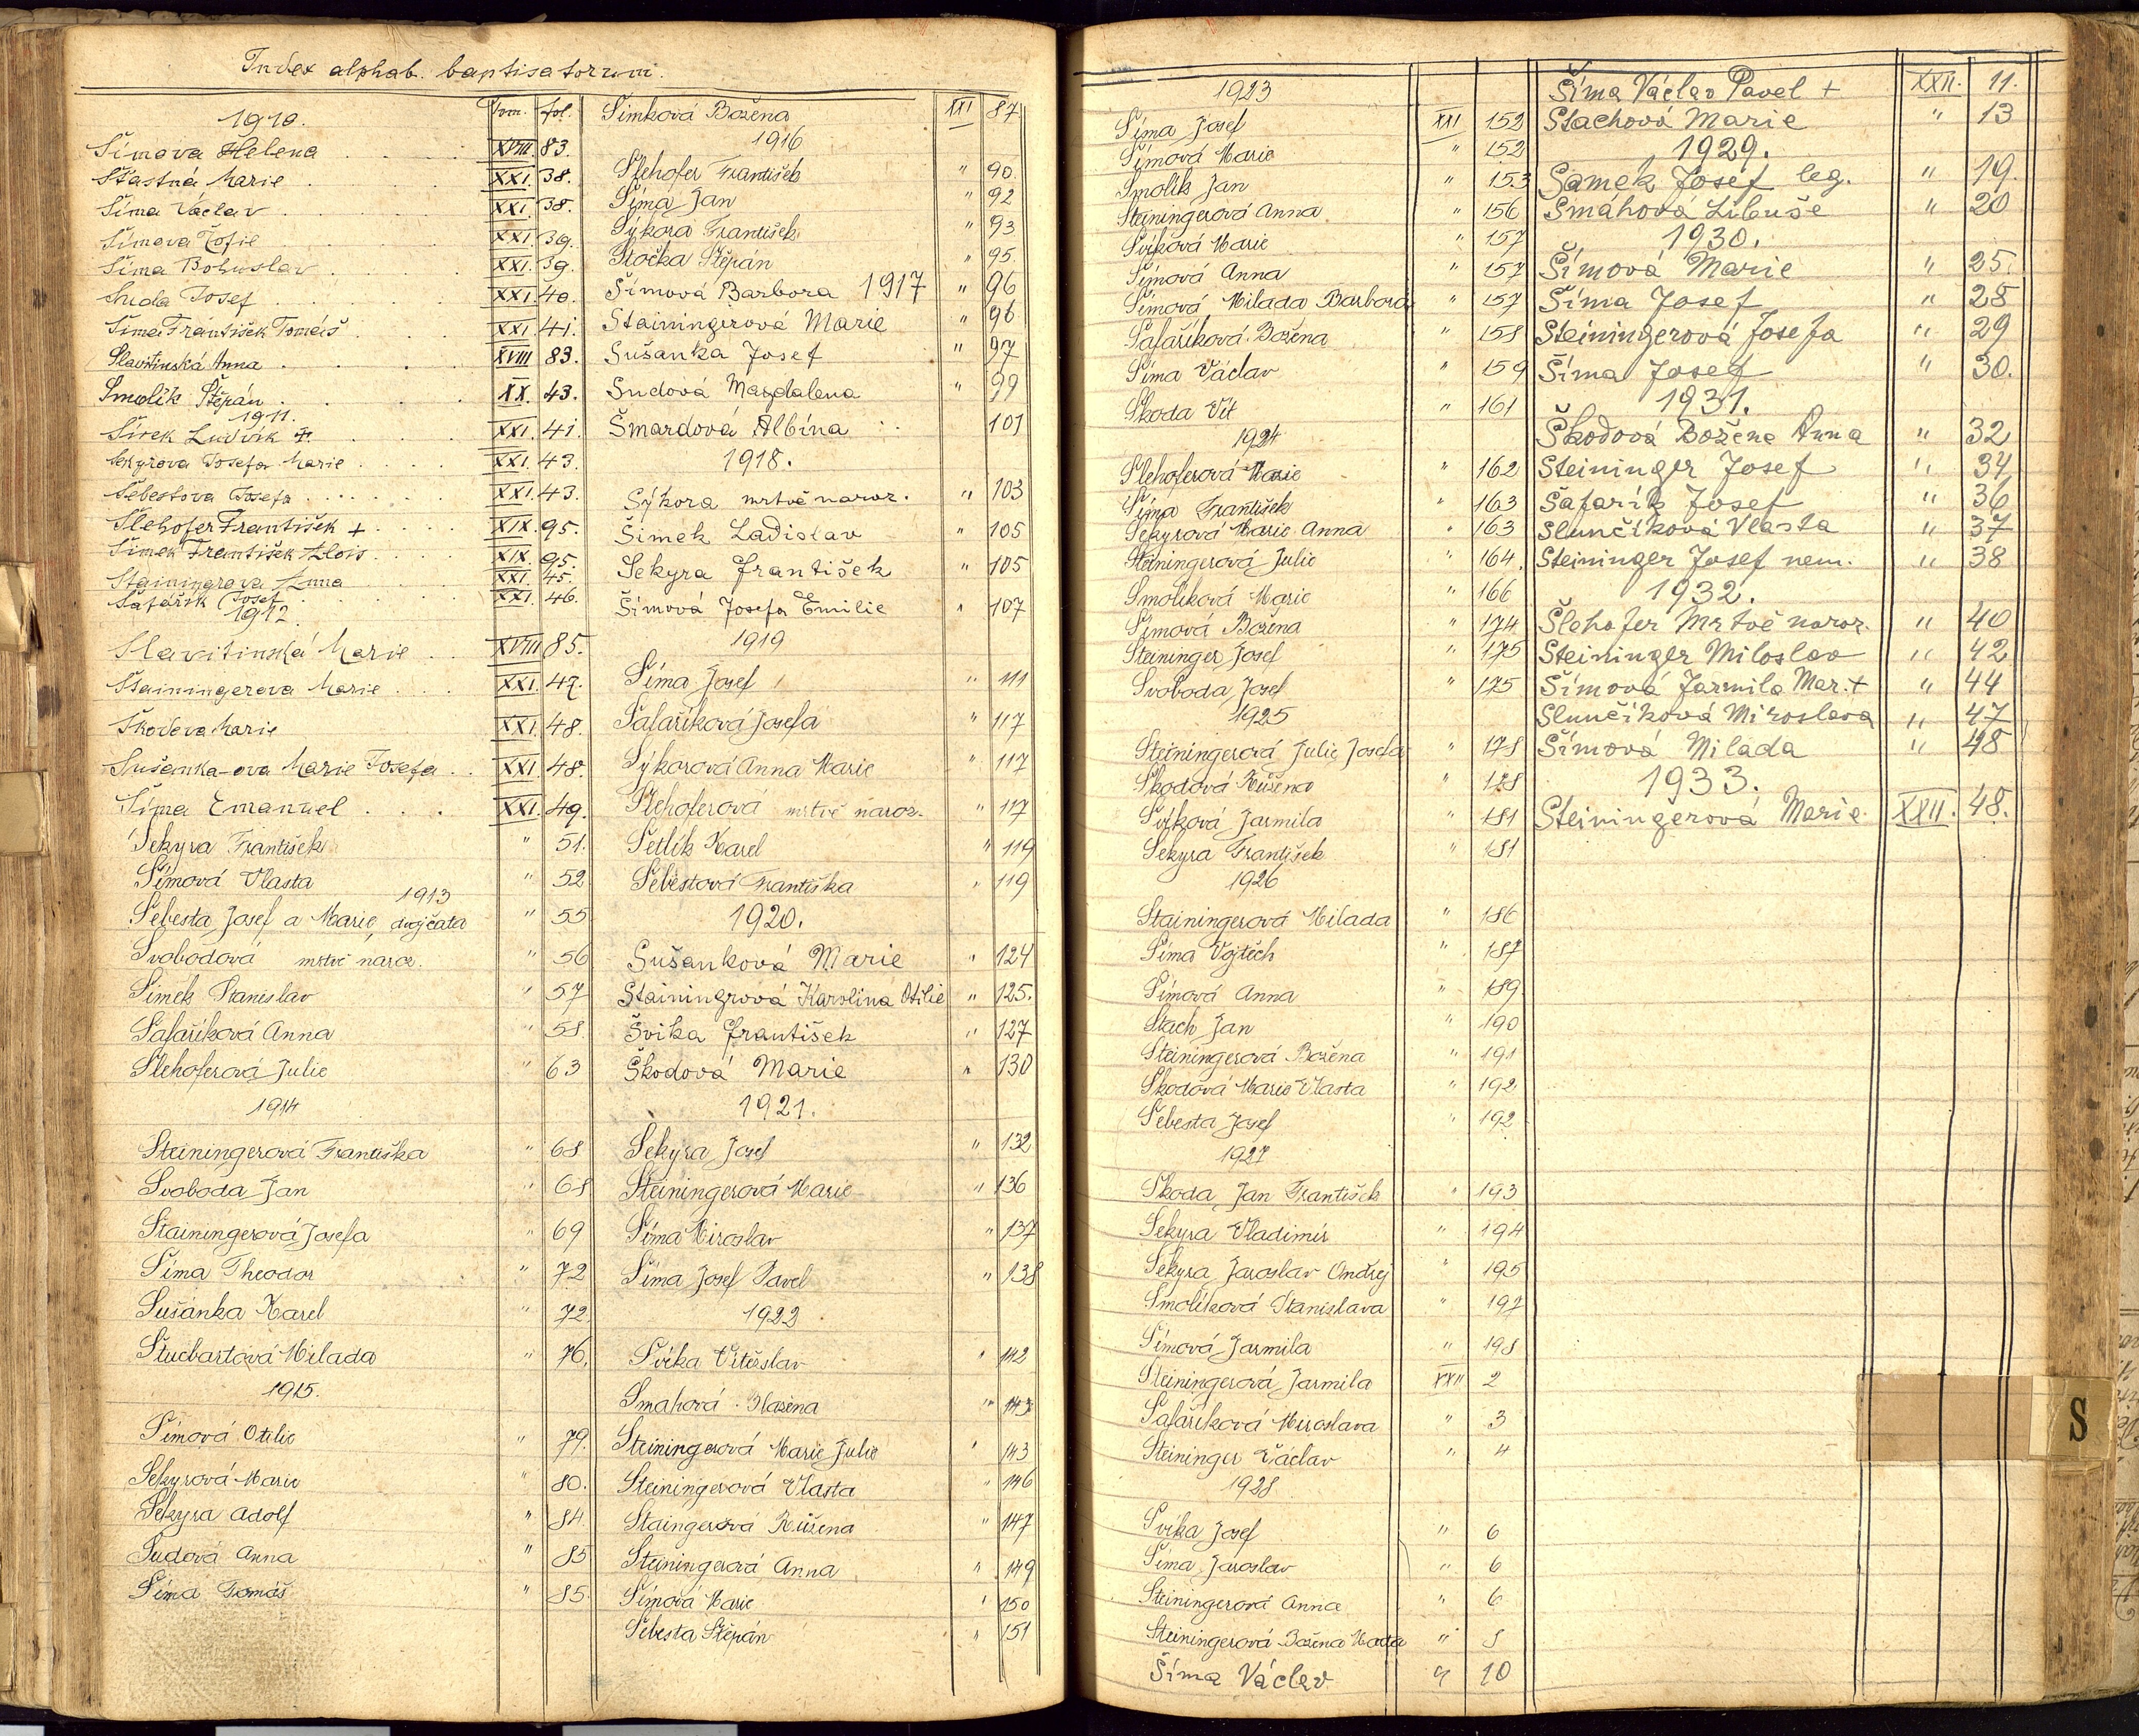 Index alphab. baptisatorum.
Tom. fol.
1910.
Šímova Helena XVIII. 83.
Šťastná Marie XXI. 38.
Šíma Václav XXI. 38.
Šímova Žofie XXI. 39.
Šíma Bohuslav XXI. 39.
Suda Josef XXI. 40.
Šíma František Tomáš XXI. 41.
Slavitinská Anna XVIII 83.
Smolík Štěpán XX. 43.
1911.
Šísek Ludvík XXI. 41.
Sekyrova Josefa Marie XXI. 43.
Šebestova Josefa XXI. 43.
Šlehofer František + XIX. 95.
Šimek František Alois XIX. 95.
Stainingrova Anna XXI. 45.
Šafařík Josef XXI. 46.
1912.
Slavitinská Marie XVIII 85.
Stainingerova Marie XXI. 47.
Škodova Marie XXI. 48.
Sušanka-ova Marie Josefa XXI. 48.
Šíma Emanuel XXI. 49.
Sekyra František " 51.
Šímová Vlasta " 52
1913
Šebesta Josef a Marie, dvojčata " 55
Svobodová mrtvě naroz. " 56
Šimek Stanislav " 57
Šafaříková Anna " 58
Šlehoferová Julie " 63
1914
Steiningerová Františka " 68
Svoboda Jan " 68
Stainingerová Josefa " 69
Šíma Theodor " 72
Sušánka Karel " 72
Stuchartová Milada " 76.
1915.
Šímová Otilie " 79.
Sekyrová Marie " 80.
Sekyra Adolf " 84.
Sudová Anna " 85
Šíma Tomáš " 85
Šimková Božena XXI 87
1916
Šlehofer František " 90.
Šíma Jan " 92
Sýkora František " 93
Stočka Štěpán " 95.
Šímová Barbora 1917 " 96
Stainingerová Marie " 96
Sušanka Josef " 97
Sudová Magdalena " 99
Šmardová Albína 101
1918.
Sýkora mrtvě naroz. " 103
Šimek Ladislav " 105
Sekyra František " 105
Šímová Josefa Emilie " 107
1919
Šíma Josef " 111
Šafaříková Josefa " 117
Sýkorová Anna Marie " 117
Šlehoferová mrtvě naroz. " 117
Šetlík Karel " 119
Šebestová Františka " 119
1920.
Sušanková Marie " 124
Stainingrová Karolina Otilie " 125.
Švika František " 127
Škodová Marie " 130
1921.
Sekyra Josef " 132
Steiningerová Marie " 136
Šíma Miroslav " 137
Šíma Josef Pavel " 138
1922
Švika Vítěslav " 142
Smahová Blažena " 143
Steiningerová Marie Julie " 143
Steiningerová Vlasta " 146
Staingerová Růžena " 147
Steiningerová Anna " 149
Šímová Marie " 150
Šebesta Štěpán " 151
1923
Šíma Josef XXI 152
Šímová Marie " 152
Smolík Jan " 153
Steiningerová Anna " 156
Švíková Marie " 157
Šímová Anna " 157
Šímová Milada Barbora " 157
Šafaříková Božena " 158
Šíma Václav " 159
Škoda Vít " 161
1924
Šlehoferová Marie " 162
Šíma František " 163
Sekyrová Marie Anna " 163
Steiningerová Julie " 164.
Smolíková Marie " 166
Šímová Božena " 174
Steininger Josef " 175
Svoboda Josef " 175
1925
Steiningerová Julie Josefa " 178
Škodová Růžena " 128
Švíková Jarmila " 181
Sekyra František " 181
1926
Stainingerová Milada " 186
Šíma Vojtěch " 187
Šímová Anna " 189
Stach Jan " 190
Steiningerová Božena " 191
Škodová Marie Vlasta " 192
Šebesta Josef " 192
1927
Škoda Jan František " 193
Sekyra Vladimír " 194
Sekyra Jaroslav Ondřej " 195
Smolíková Stanislava " 197
Šímová Jarmila " 198
Steiningerová Jarmila XXII 2
Šafaříková Miroslava " 3
Steininger Václav " 4
1928
Švika Josef " 6
Šíma Jaroslav " 6
Steiningerová Anna " 6
Steiningerová Božena " 8
Šíma Václav " 10
Šíma Václav Pavel + XXII. 11.
Stachová Marie " 13
1929.
Samek Josef leg. " 19.
Smáhová Libuše " 20
1930.
Šímová Marie " 25.
Šíma Josef " 28
Steiningerová Josefa " 29
Šíma Josef " 30.
1931.
Škodová Božena Anna " 32
Steininger Josef " 34
Šafařík Josef " 36
Slunčíková Vlasta " 37
Steininger Josef nem. " 38
1932.
Šlehofer Mrtvě naroz. " 40
Steininger Miloslav " 42
Šímová Jarmila Mar. + " 44
Slunčíková Miroslava " 47
Šímová Milada " 48
1933.
Steiningerová Marie XXII. 48.
S